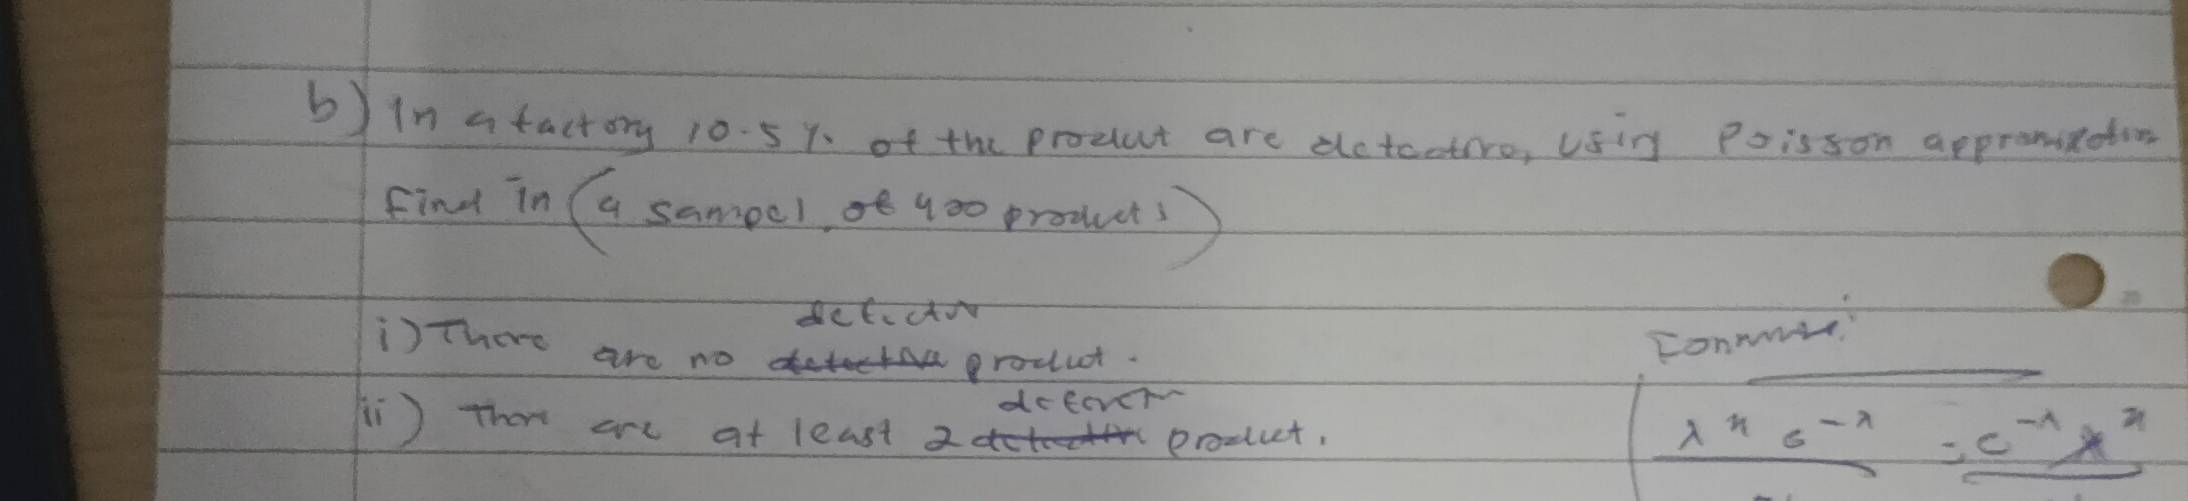 b) In a factory 10.5% of the product are detective, using Poisson
find in (a sampel of 400 products)
defective
i) There are no detective product.
ii) There are at least 2 detective product.
λ^x e^-λ = e^-λ λ^x